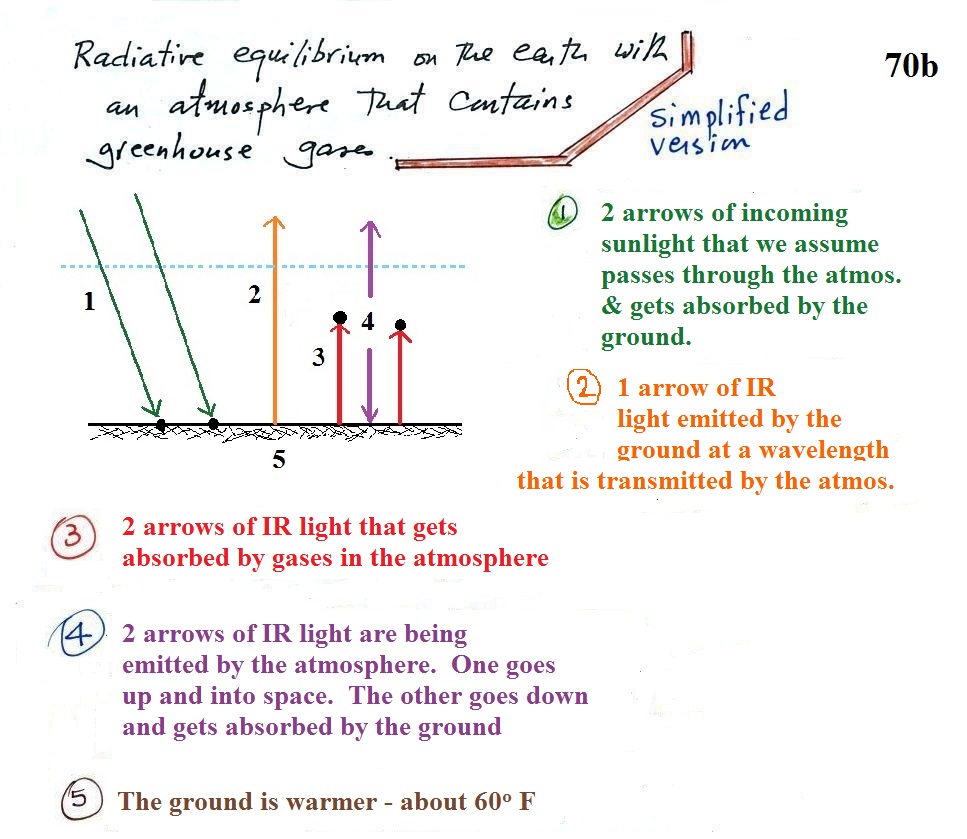 Radiative equilibrium on the earth with
an atmosphere that contains
greenhouse gases.
simplified
version
70b
1
2
3
4
5
1
2 arrows of incoming
sunlight that we assume
passes through the atmos.
& gets absorbed by the
ground.
2
1 arrow of IR
light emitted by the
ground at a wavelength
that is transmitted by the atmos.
3
2 arrows of IR light that gets
absorbed by gases in the atmosphere
4
2 arrows of IR light are being
emitted by the atmosphere. One goes
up and into space. The other goes down
and gets absorbed by the ground
5
The ground is warmer - about 60º F